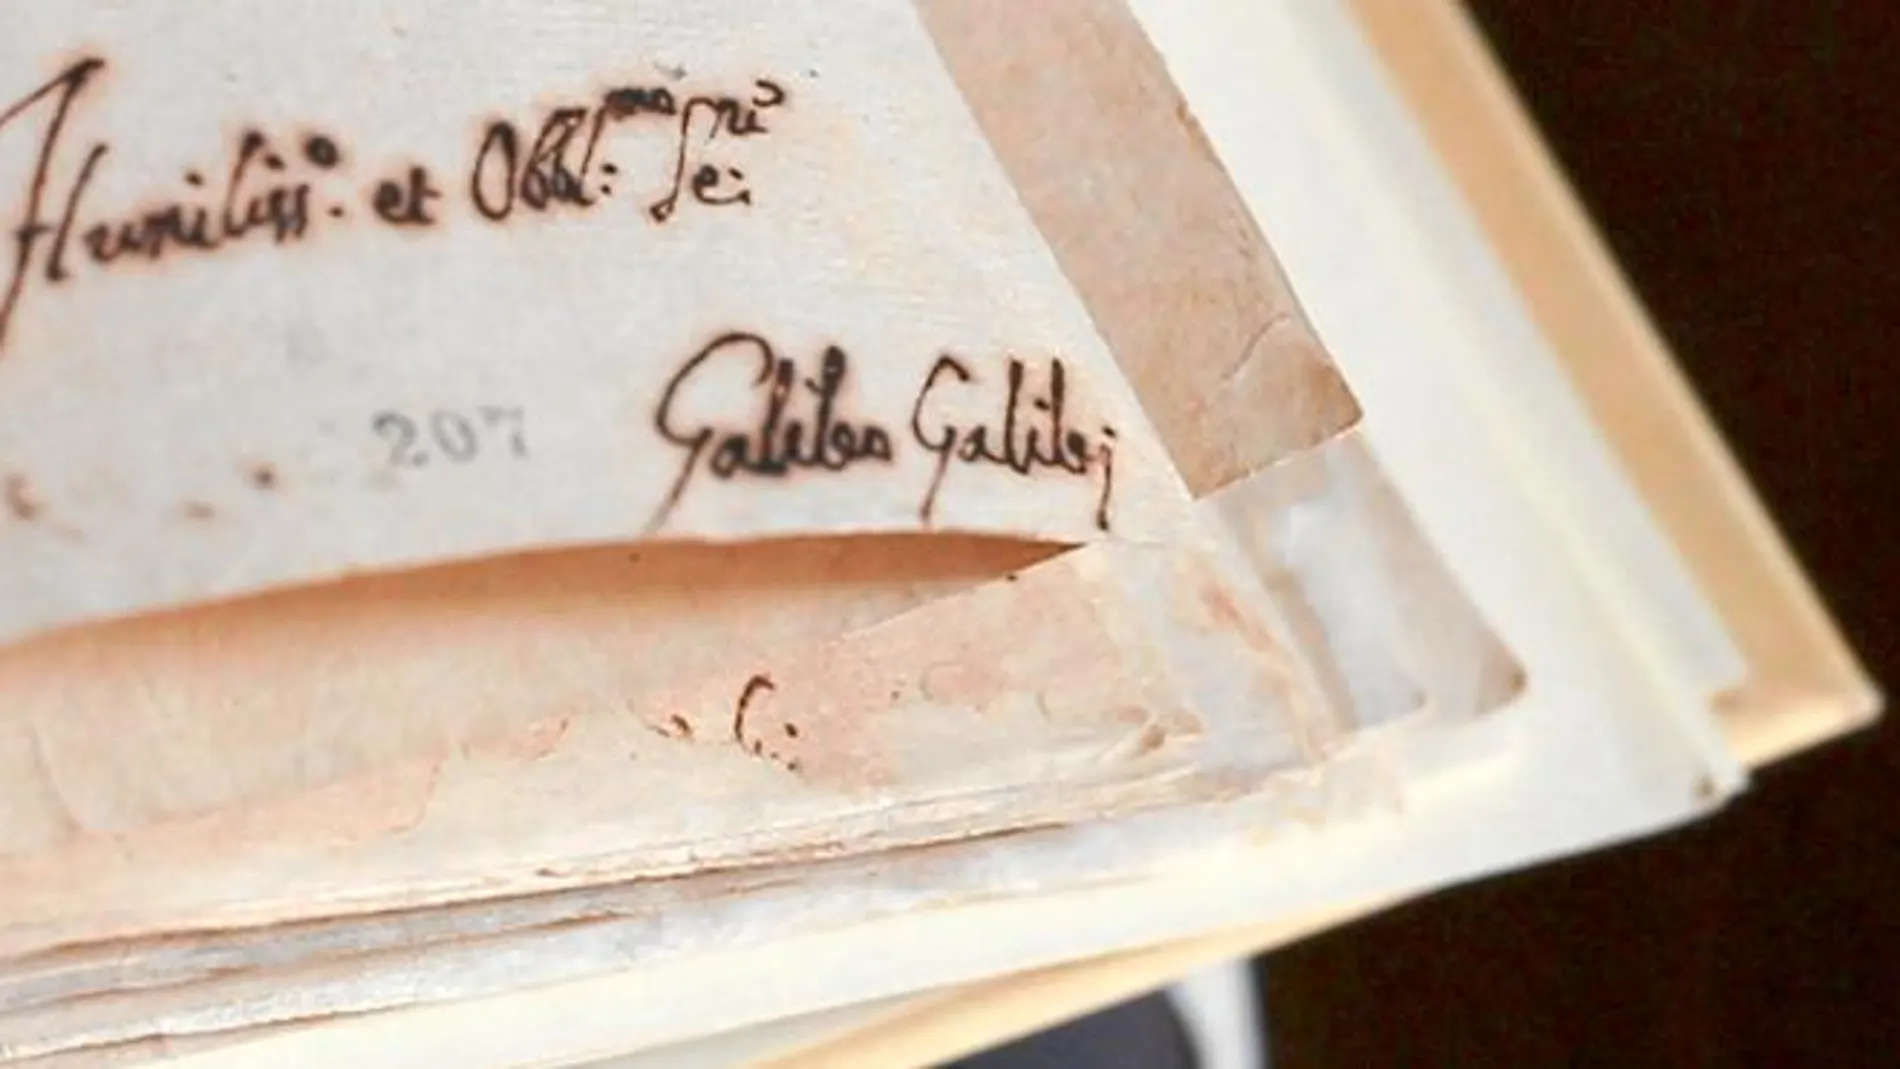 Humiliss.º et Obbl:mo Se:ri
207
Galileo Galilej